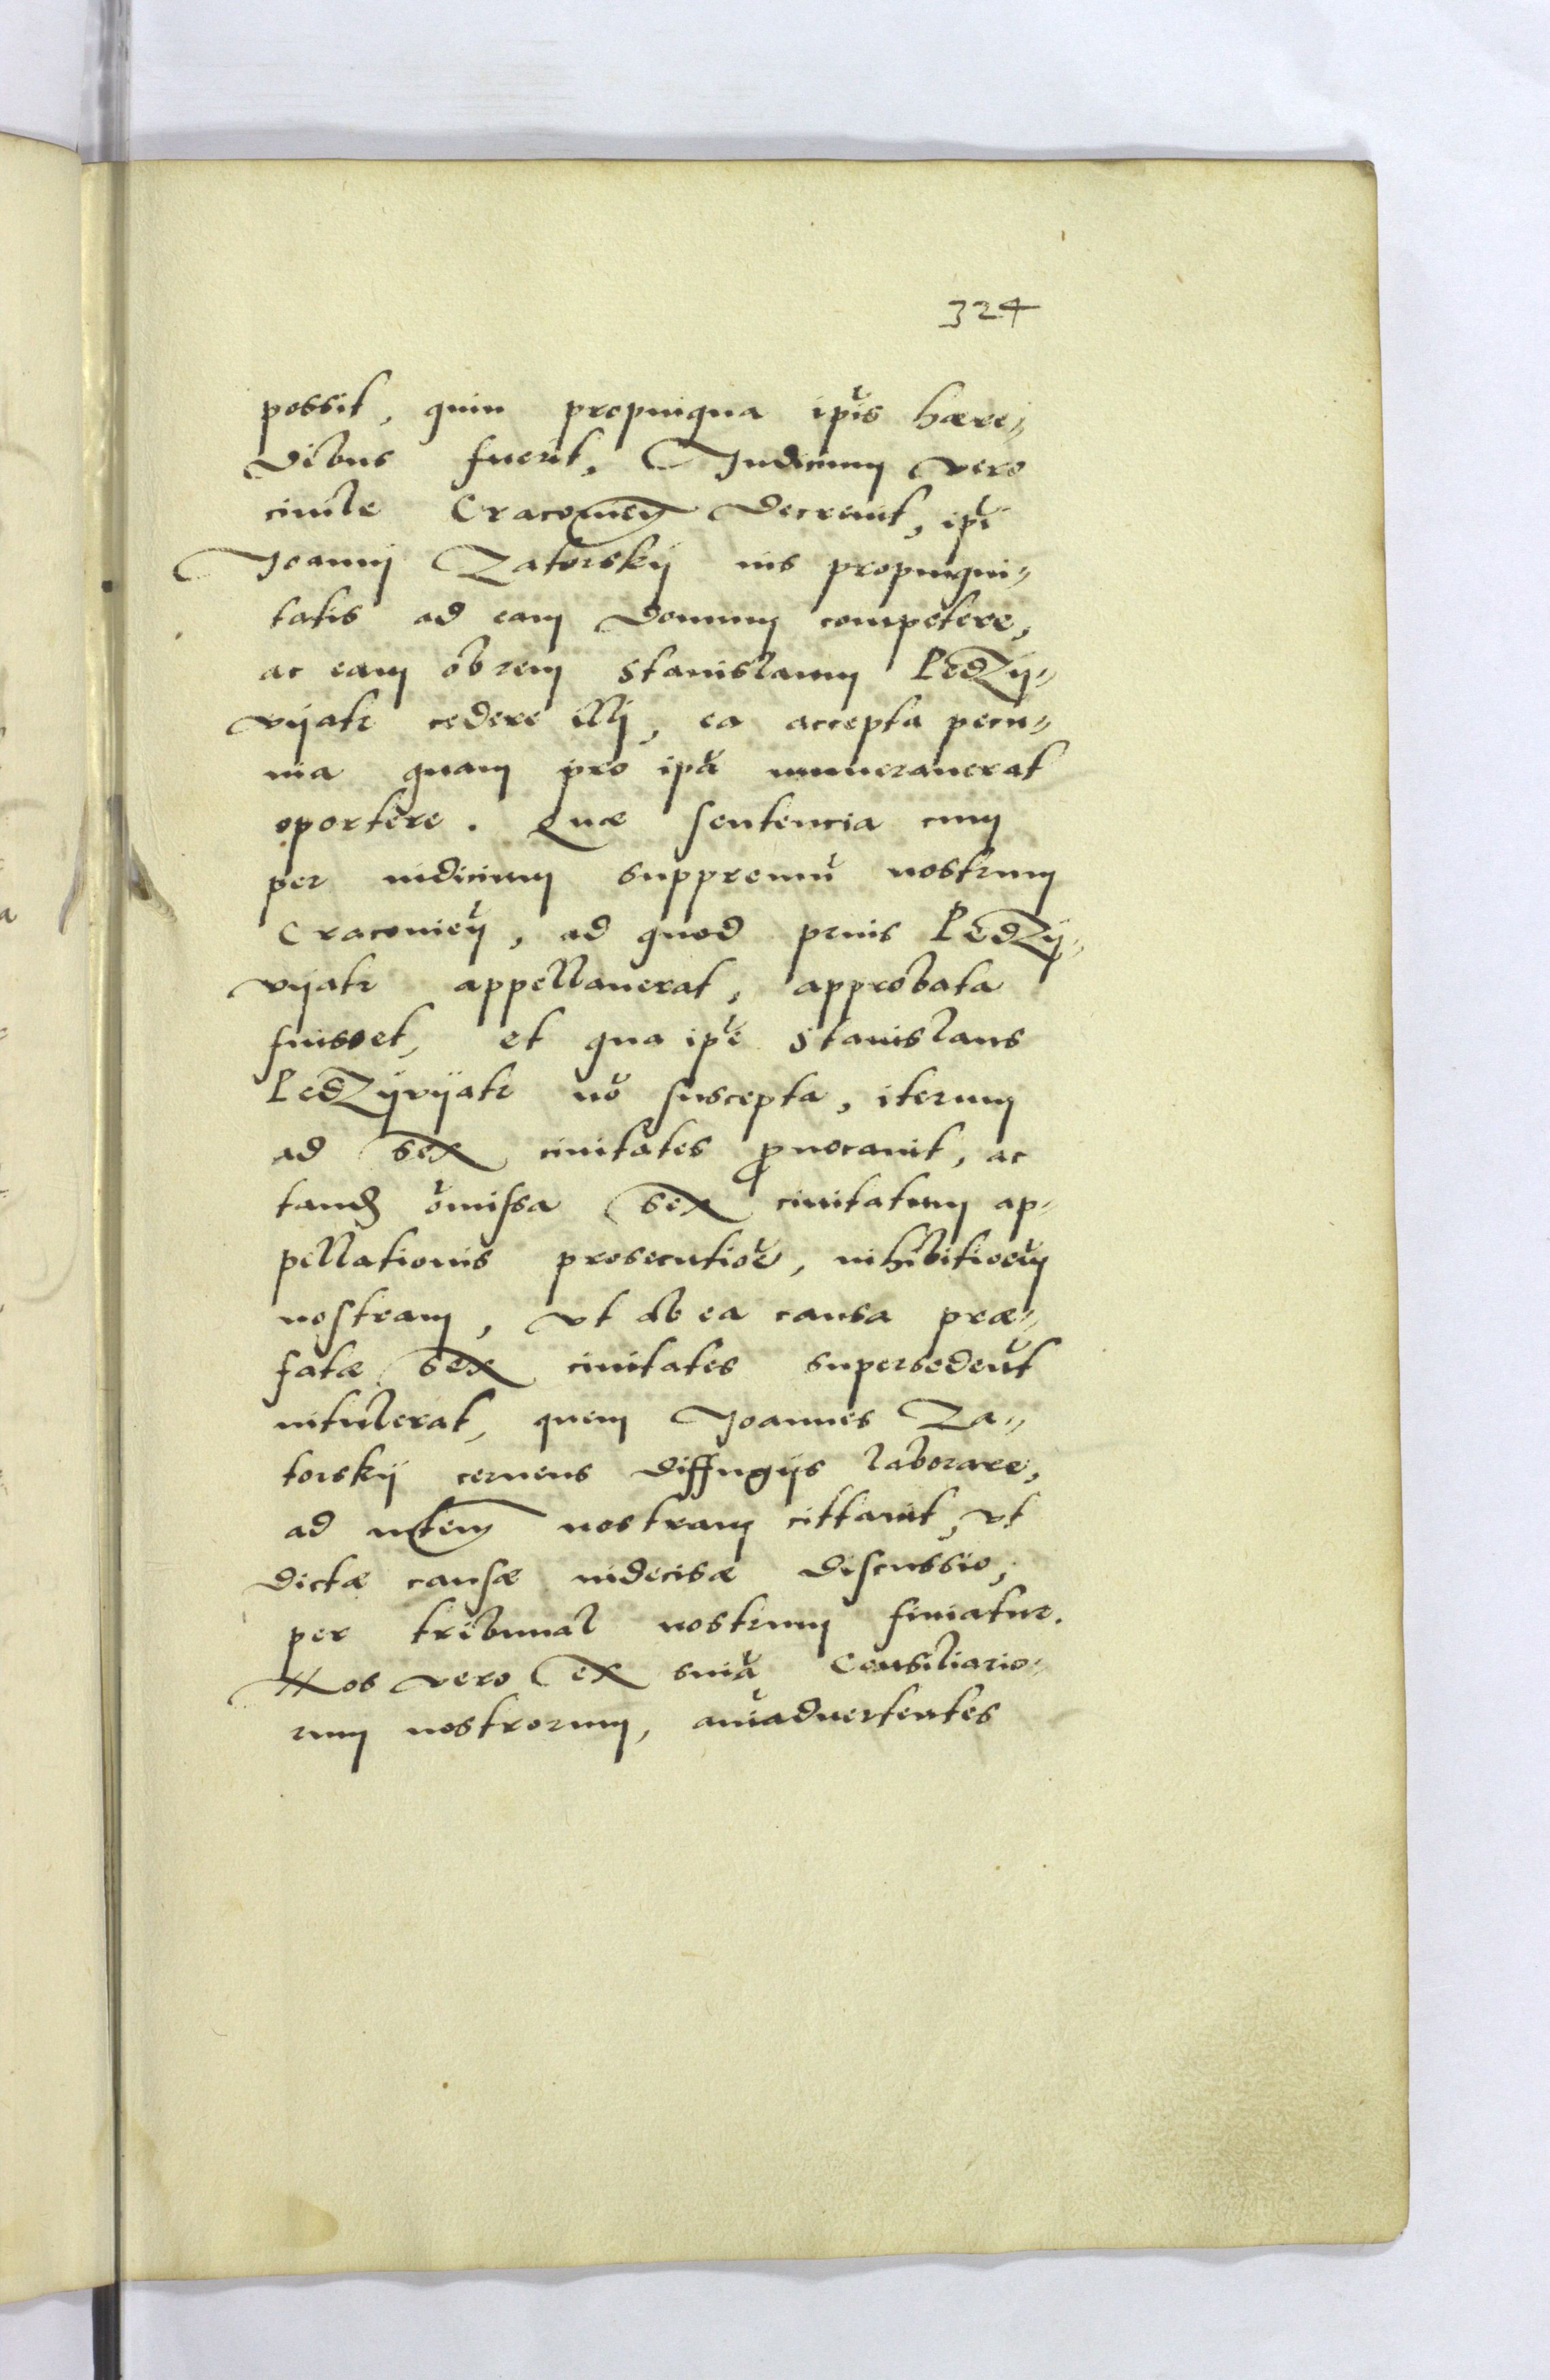 324
possit, quin propinqua ip̃is hære„
dibus fuerit, Judicium vero
ciuile Cracouieñ decreuit, ip̃i
Joanni Zatorskij ius propinqui„
tatis ad eam domum competere,
ac eam ob rem Stanislaum Pedzy„
vijatr cedere illj, ea accepta pecu„
nia quam pro ip̃a numerauerat
oportere. Quæ sentencia cum
per iudicium suppremũ nostrum
Cracouieñ, ad quod prius Pedzij„
vijatr appellauerat, approbata
fuisset, et qua ip̃e Stanislaus
Pedzijvijatr nõ suscepta, iterum
ad sex ciuitates ꝓuocauit, ac
tandẽ omissa sex ciuitatum ap„
pellationis prosecutioẽ, inhibitioẽm
nostram, vt ab ea causa præ„
fatæ sex ciuitates supersedeñt
intulerat, quem Joannes Za„
torskij cernens diffugijs laborare,
ad mtem nostram cittauit, vt
dictæ causæ indecisæ discussio,
per tribunal nostrum finiatur.
Nos vero ex sniã Consiliario„
rum nostrorum, aĩaduertentes